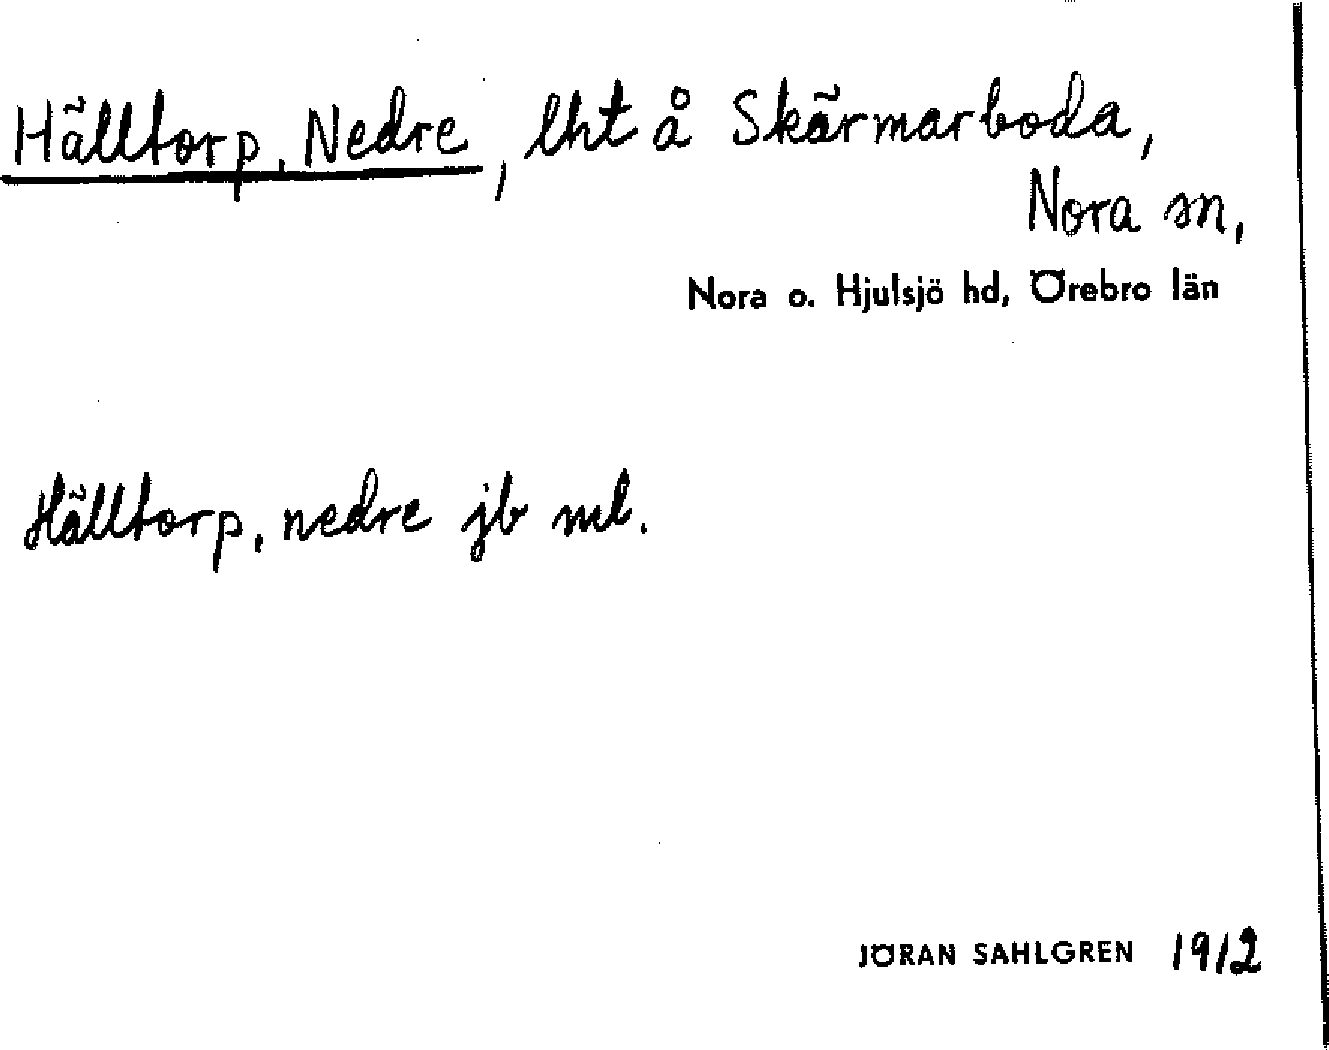 Hälltorp, Nedre, lht å Skärmarboda,
Nora sn,
Nora o. Hjulsjö hd, Örebro län
Hälltorp, nedre jb ml.
JÖRAN SAHLGREN 1912